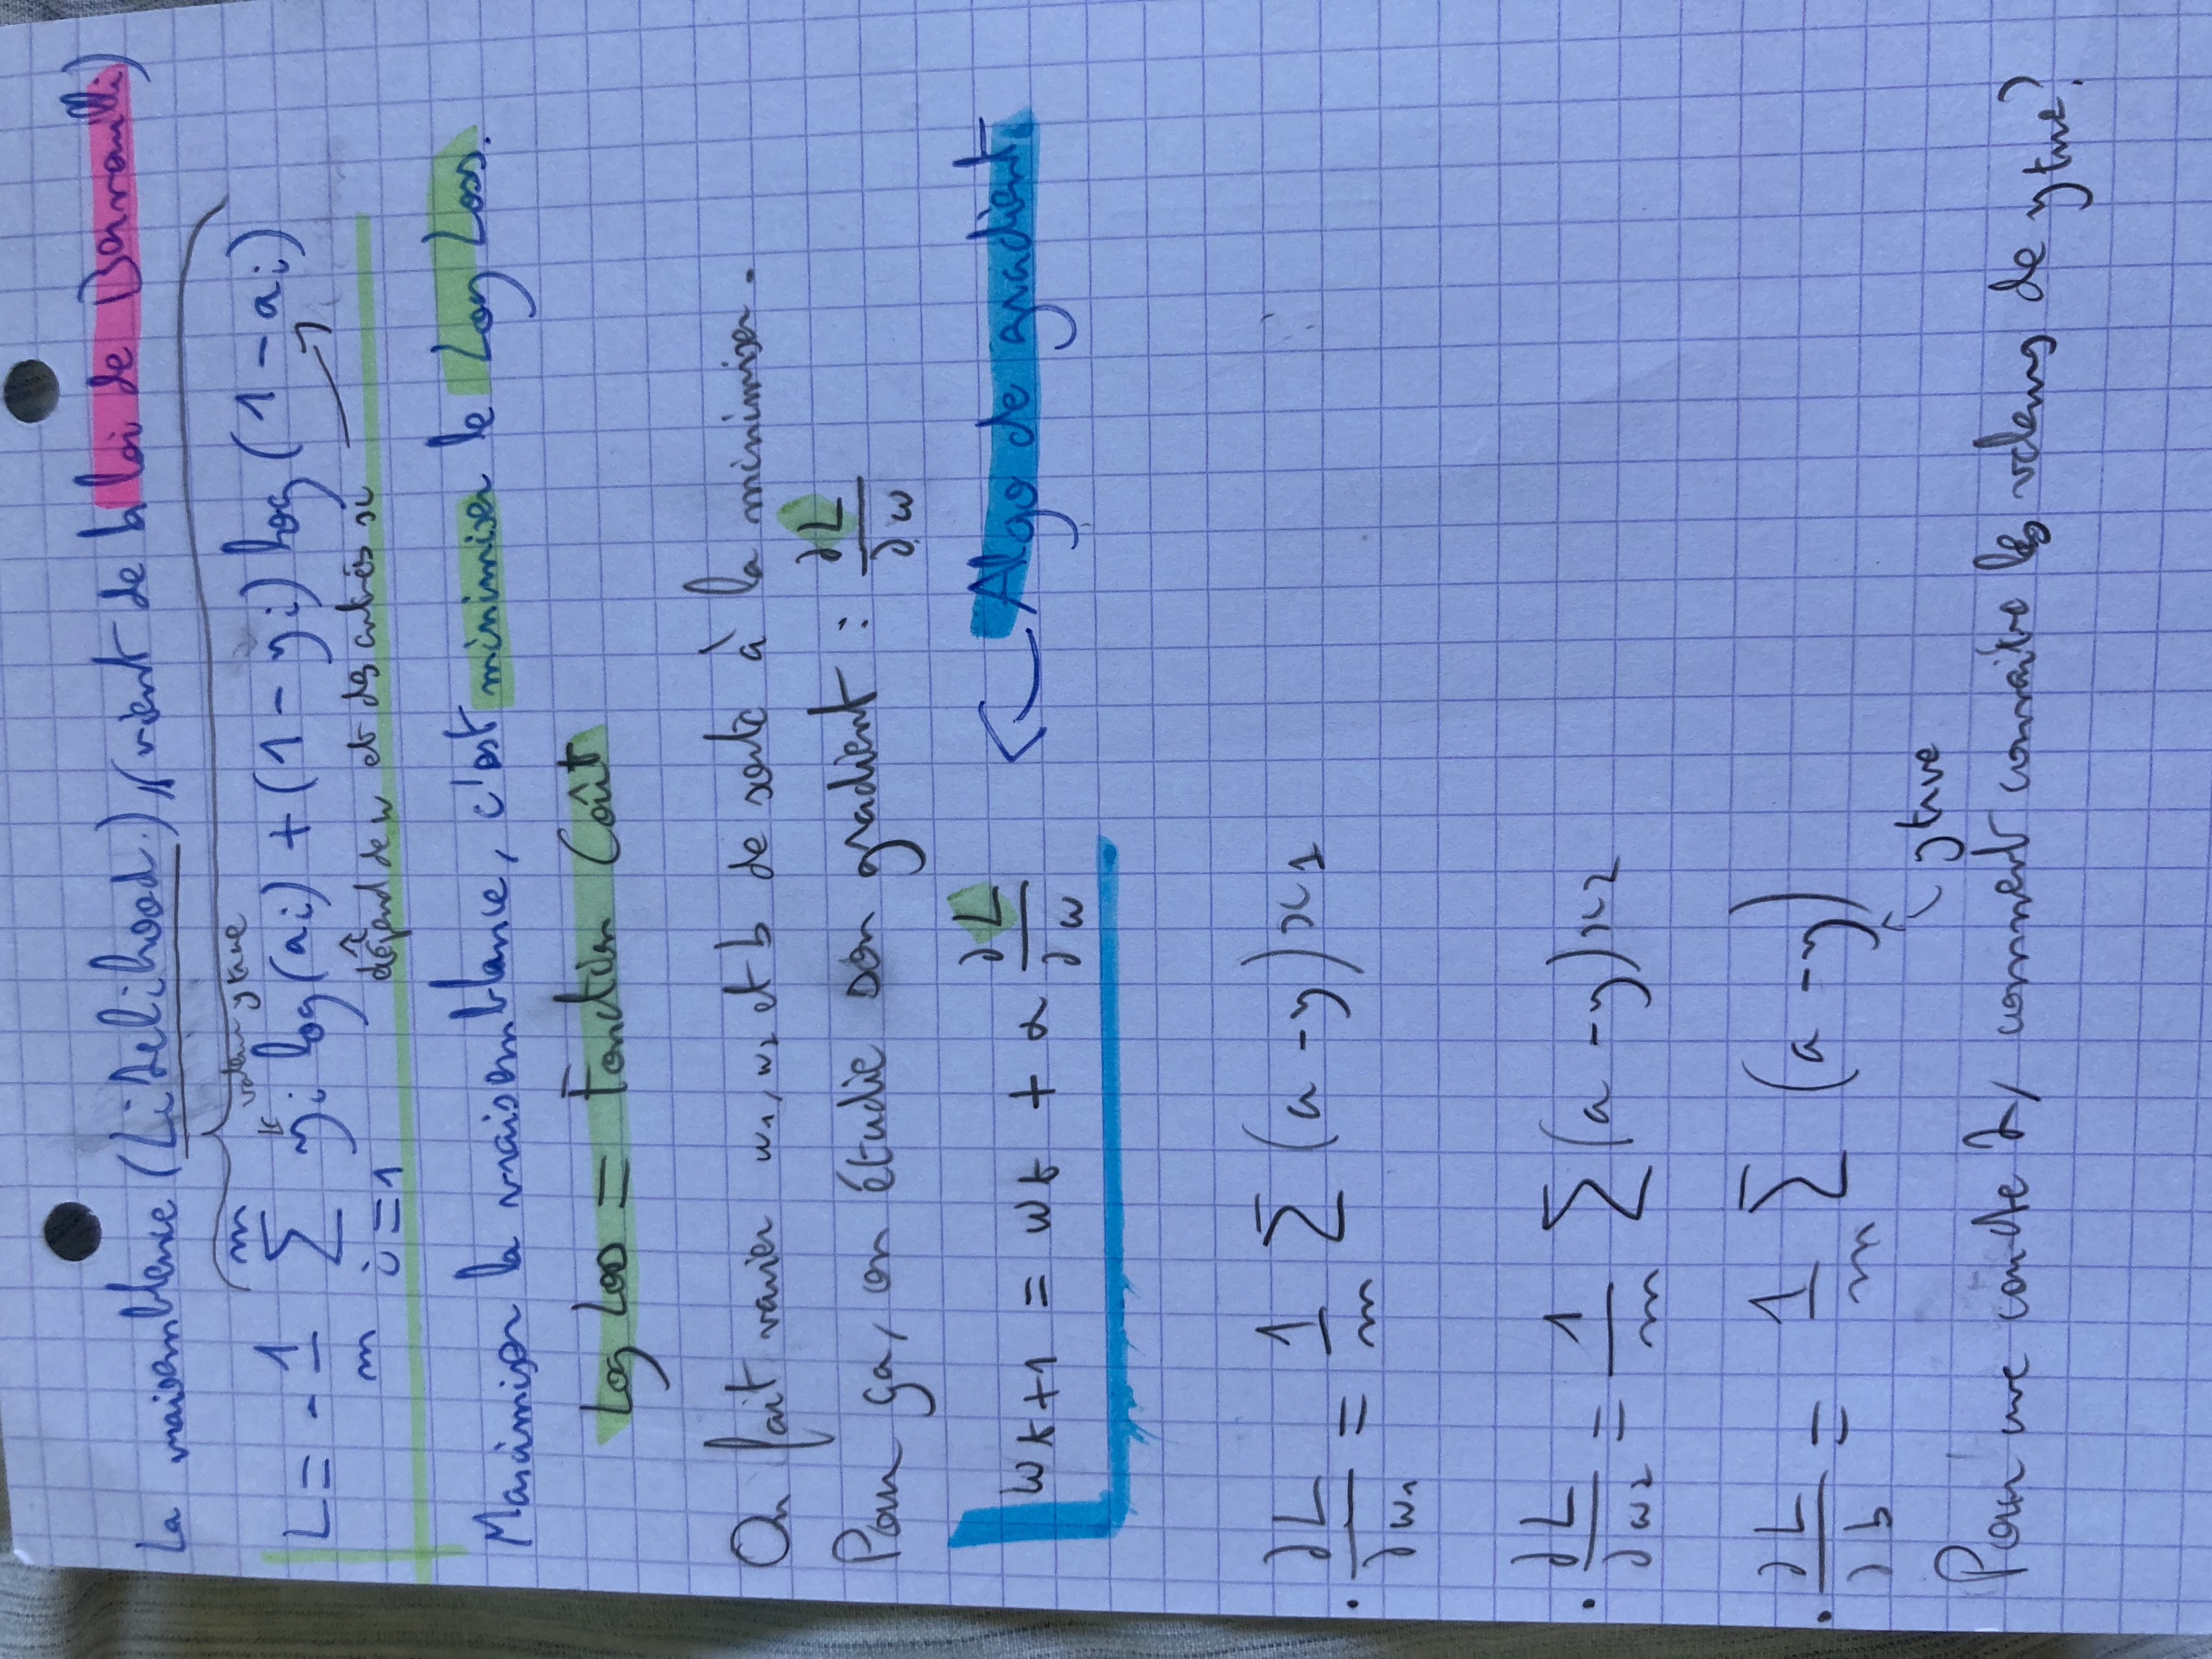 La vraisemblance (Likelihood), (vient de la loi de Bernouilli)
valeur y true
L = - 1/m Σ_{i=1}^{m} y_i log(a_i) + (1 - y_i) log(1 - a_i)
dépend de w et des entrées x
Maximiser la vraisemblance, c'est minimiser le Log Loss.
Log Loss = Fonction Coût
On fait varier w1, w2 et b de sorte à la minimiser.
Pour ça, on étudie son gradient : ∂L/∂w
w_{t+1} = w_t + α ∂L/∂w ← Algo de gradient.
• ∂L/∂w1 = 1/m Σ (a - y) x1
• ∂L/∂w2 = 1/m Σ (a - y) x2
• ∂L/∂b = 1/m Σ (a - y)
y true
Pour une couche 2, comment connaitre les valeurs de y true ?